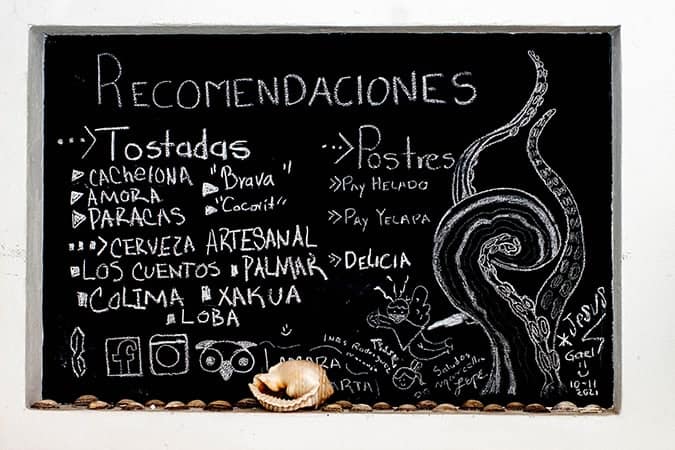 RECOMENDACIONES
Tostadas
CACHELONA "Brava"
AMORA "Cocovit"
PARACAS
CERVEZA ARTESANAL
LOS CUENTOS PALMAR
COLIMA XAKUA
LOBA
Postres
PAY HELADO
PAY YELAPA
DELICIA
Saludos
Gael
10-11
2021